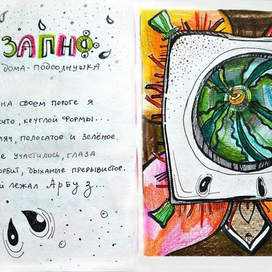 ЗАПНФ
ДОМА-ПОДСОЛНУШКА
НА СВОЕМ ПОРОГЕ Я
ЧТО, КРУГЛОЙ ФОРМЫ...
МЯЧ, ПОЛОСАТОЕ И ЗЕЛЁНОЕ
Е УЧАСТИЛОСЬ, ГЛАЗА
ОРБИТ, ДЫХАНЬЕ ПРЕРЫВИСТОЕ.
Й ЛЕЖАЛ АРБУЗ...